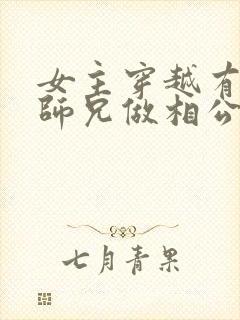 女主穿越有
師兄做相公
七月青果